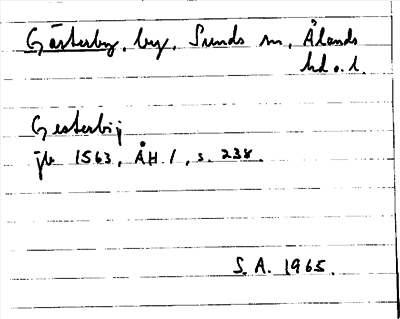 Gästerby, by, Sunds sn, Ålands
hd o. l.
Gesterbij
jb 1563, ÅH. 1, s. 238.
S. A. 1965.